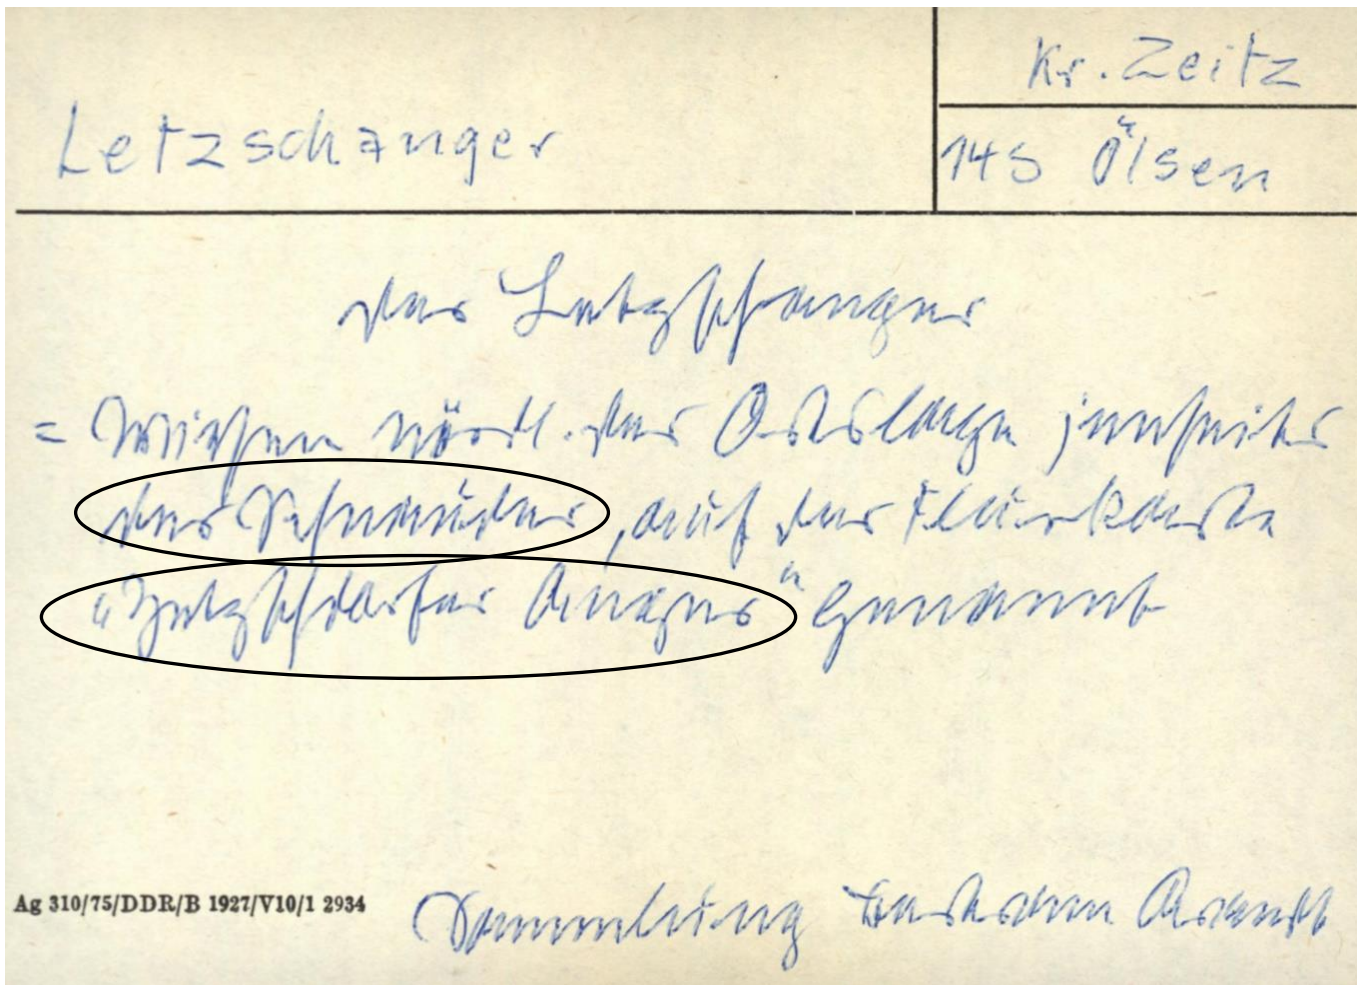 Kr. Zeitz
Letzschanger
145 Ölsen
der Letzschanger
= Wiesen nördl. der Ortslage jenseits
der Schnauder, auf der Flurkarte
"Zetzschdorfer Anger" genannt
Ag 310/75/DDR/B 1927/V10/1 2934
Sammlung